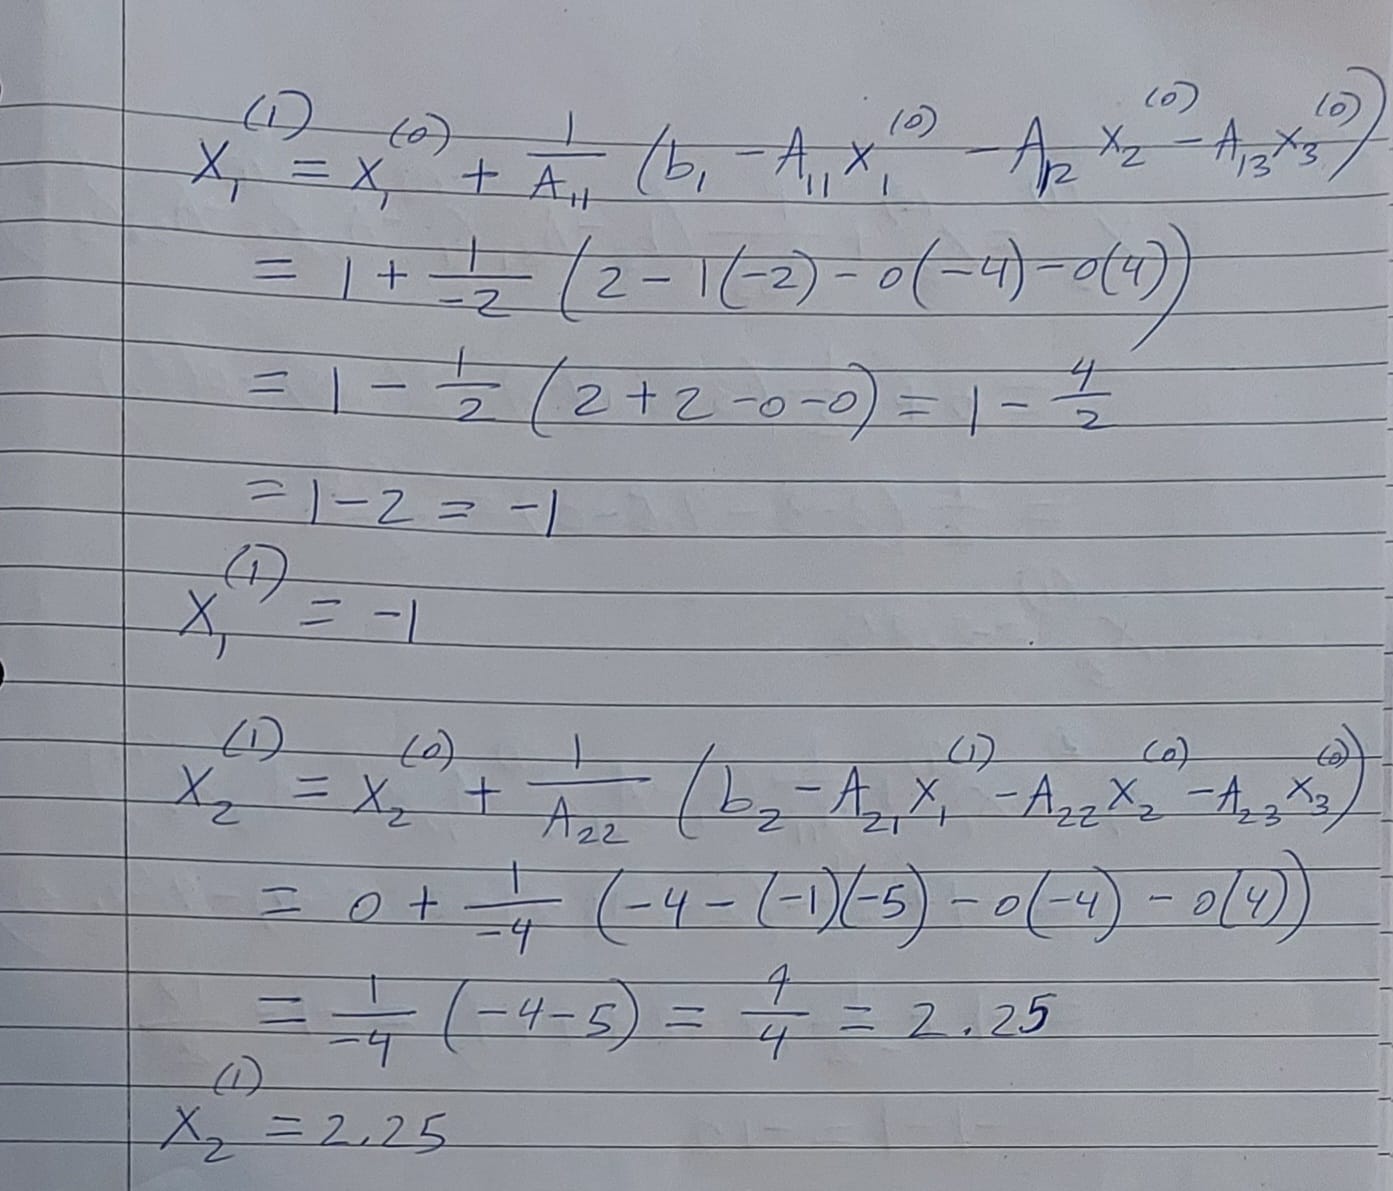 x₁⁽¹⁾ = x₁⁽⁰⁾ + 1/A₁₁ (b₁ - A₁₁ x₁⁽⁰⁾ - A₁₂ x₂⁽⁰⁾ - A₁₃ x₃⁽⁰⁾)
= 1 + 1/-2 (2 - 1(-2) - 0(-4) - 0(4))
= 1 - 1/2 (2 + 2 - 0 - 0) = 1 - 4/2
= 1 - 2 = -1
x₁⁽¹⁾ = -1
x₂⁽¹⁾ = x₂⁽⁰⁾ + 1/A₂₂ (b₂ - A₂₁ x₁⁽¹⁾ - A₂₂ x₂⁽⁰⁾ - A₂₃ x₃⁽⁰⁾)
= 0 + 1/-4 (-4 - (-1)(-5) - 0(-4) - 0(4))
= 1/-4 (-4 - 5) = 9/4 = 2.25
x₂⁽¹⁾ = 2.25